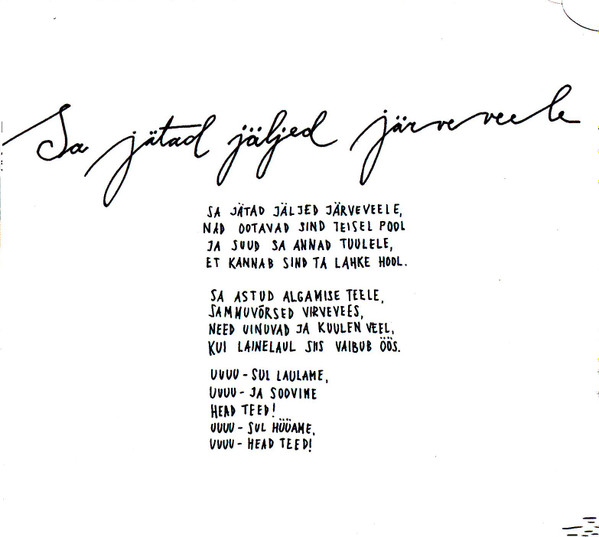 Sa jätad jäljed järveveele
SA JÄTAD JÄLJED JÄRVEVEELE,
NAD OOTAVAD SIND TEISEL POOL
JA SUUD SA ANNAD TUULELE,
ET KANNAB SIND TA LAHKE HOOL.
SA ASTUD ALGAMISE TEELE,
SAMMUVÕRSED VIRVEVEES,
NEED UINUVAD JA KUULEN VEEL,
KUI LAINELAUL SIIS VAIBUB ÖÖS.
UUUU - SUL LAULAME,
UUUU - JA SOOVIME
HEAD TEED!
UUUU - SUL HÜÜAME,
UUUU - HEAD TEED!